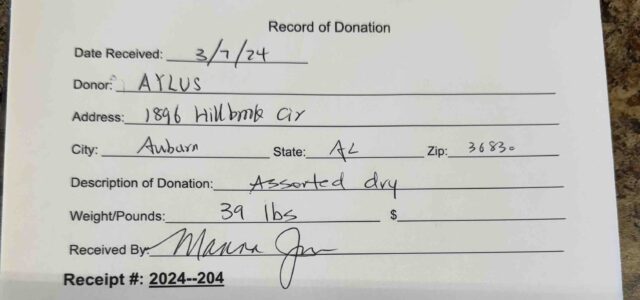 Record of Donation
Date Received: 3/7/24
Donor: AYLUS
Address: 1896 Hillbrook Cir
City: Auburn State: AL Zip: 36830
Description of Donation: Assorted dry
Weight/Pounds: 39 lbs $
Received By:
Receipt #: 2024--204